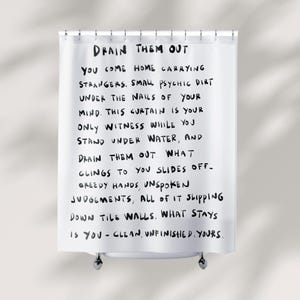 DRAIN THEM OUT
YOU COME HOME CARRYING
STRANGERS. SMALL PSYCHIC DIRT
UNDER THE NAILS OF YOUR
MIND. THIS CURTAIN IS YOUR
ONLY WITNESS WHILE YOU
STAND UNDER WATER, AND
DRAIN THEM OUT WHAT
CLINGS TO YOU SLIDES OFF-
GREEDY HANDS, UNSPOKEN
JUDGEMENTS, ALL OF IT SLIPPING
DOWN TILE WALLS. WHAT STAYS
IS YOU - CLEAN. UNFINISHED. YOURS.